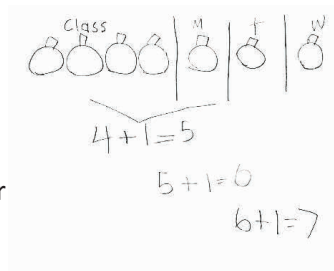 Class M T W
4+1=5
5+1=6
r
6+1=7